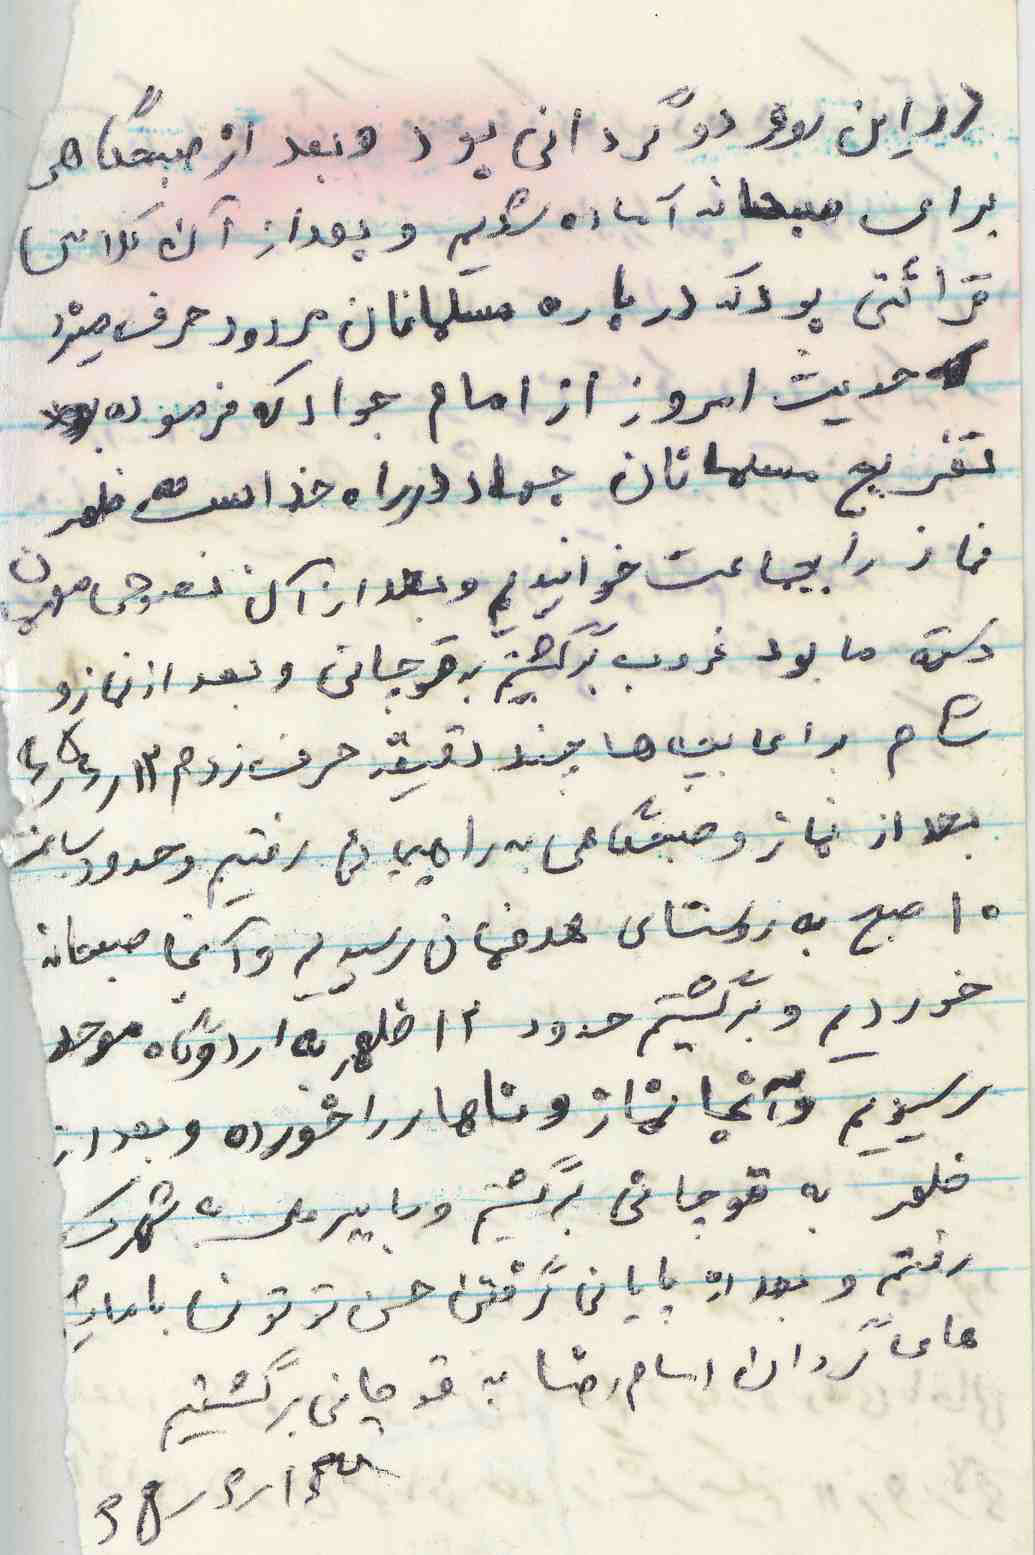 در این روز دو گردانی بود و بعد از صبحگاهی
برای صبحانه آماده شدیم و بعد از آن کلاس
قرائتی بود که درباره مسلمانان مردود حرف میزد
حدیث امروز از امام جواد که فرموده بود
تفریح مسلمانان جهاد در راه خداست ظهر
نماز را بجماعت خواندیم و بعد از آن
دسته ما بود غروب برگشتیم به قوجانی و بعد از نماز و
شام برای بچه ها چند دقیقه حرف زدم
بعد از نماز و صبحگاهی به راهپیمائی رفتیم و حدود ساعت
۱۰ صبح به روستای هدفمان رسیدیم و آنجا صبحانه
خوردیم و برگشتیم حدود ۱۲ ظهر به اردوگاه موحد
رسیدیم و آنجا نماز و ناهار را خورده و بعد از
ظهر به قوجانی برگشتیم و با پیرعلی به شهرک
رفتیم و بعد از پایانی گرفتن حسن بامدارک
های گردان امام رضا به قوچانی برگشتیم